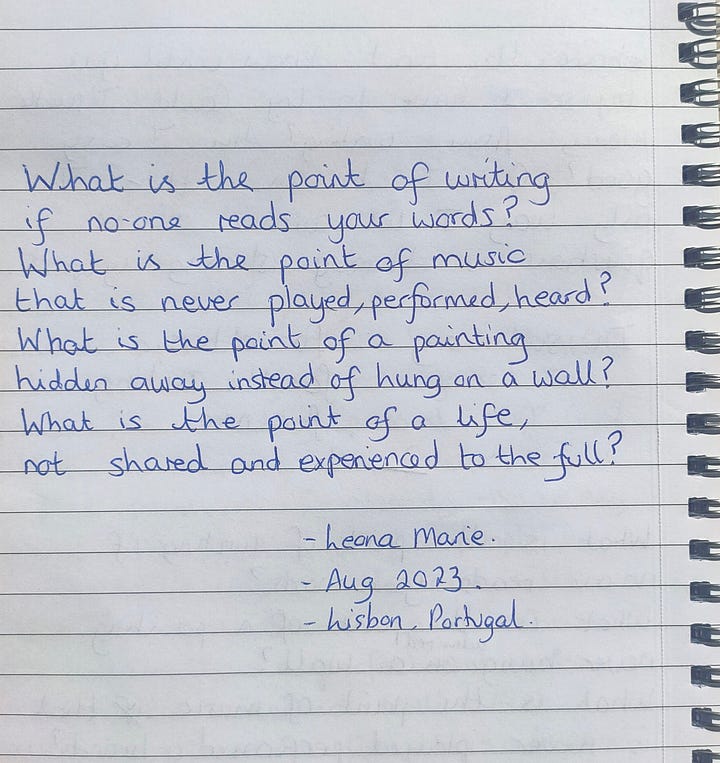 What is the point of writing
if no-one reads your words?
What is the point of music
that is never played, performed, heard?
What is the point of a painting
hidden away instead of hung on a wall?
What is the point of a life,
not shared and experienced to the full?
- Leona Marie.
- Aug 2023.
- Lisbon, Portugal.